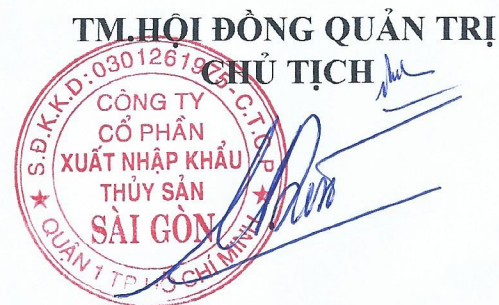 TM.HỘI ĐỒNG QUẢN TRỊ
CHỦ TỊCH
S.Đ.K.K.D: 0301261975-C.T.C.P
CÔNG TY
CỔ PHẦN
XUẤT NHẬP KHẨU
THỦY SẢN
SÀI GÒN
QUẬN 1 TP HỒ CHÍ MINH